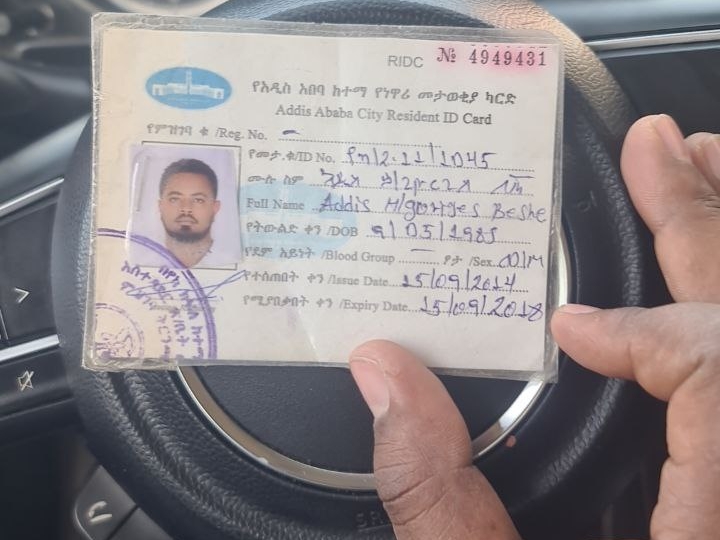 RIDC № 4949431
የአዲስ አበባ ከተማ የነዋሪ መታወቂያ ካርድ
Addis Ababa City Resident ID Card
የምዝገባ ቁ /Reg. No. —
የመታ.ቁ/ID No. /2.11/1045
ሙሉ ስም
Full Name Addis H/giorges Beshe
የትውልድ ቀን /DOB 9/05/1985
የደም አይነት /Blood Group — ፆታ /Sex ወ/M
የተሰጠበት ቀን /Issue Date 15/09/2014
የሚያበቃበት ቀን /Expiry Date 15/09/2018